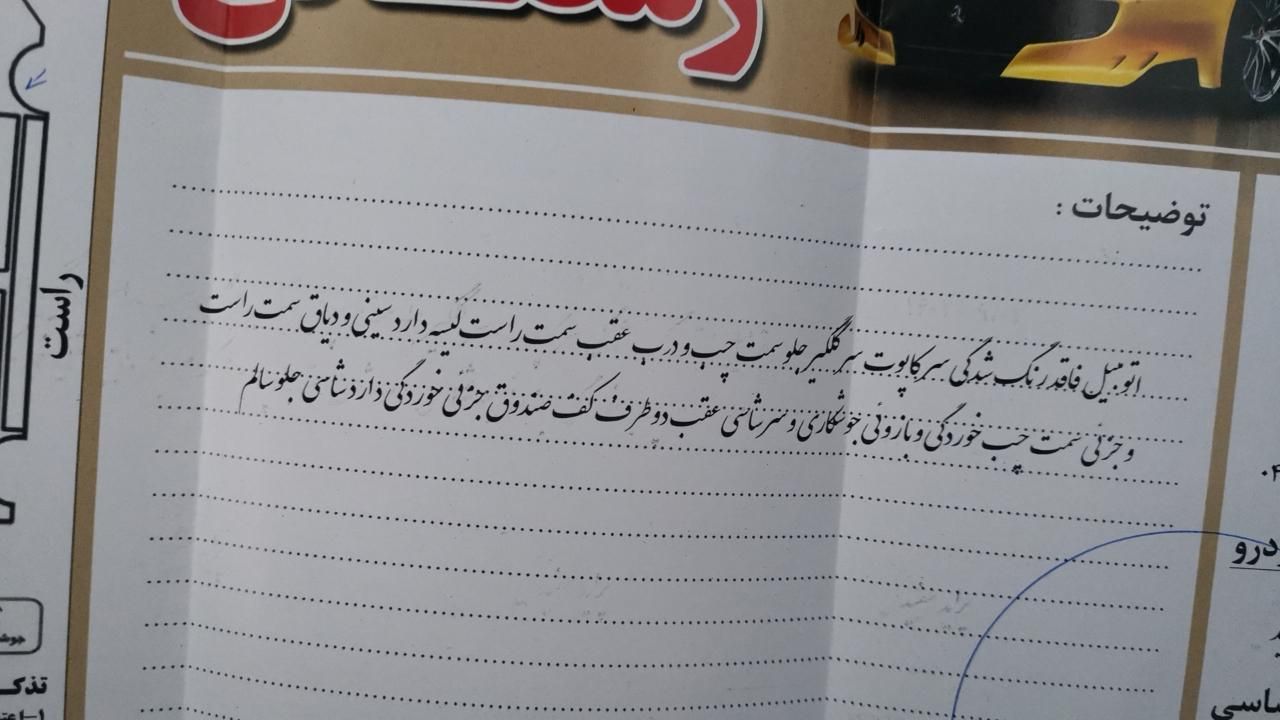 توضیحات :
اتومبیل فاقد رنگ شدگی سرکاپوت سرگلگیر جلو سمت چپ و درب عقب سمت راست گیسه دارد سینی و دیاق سمت راست
و جزئی سمت چپ خوردگی و بازوئی جوشکاری و سرشاسی عقب دو طرف کف صندوق جزئی خوردگی دارد شاسی جلو سالم
راست